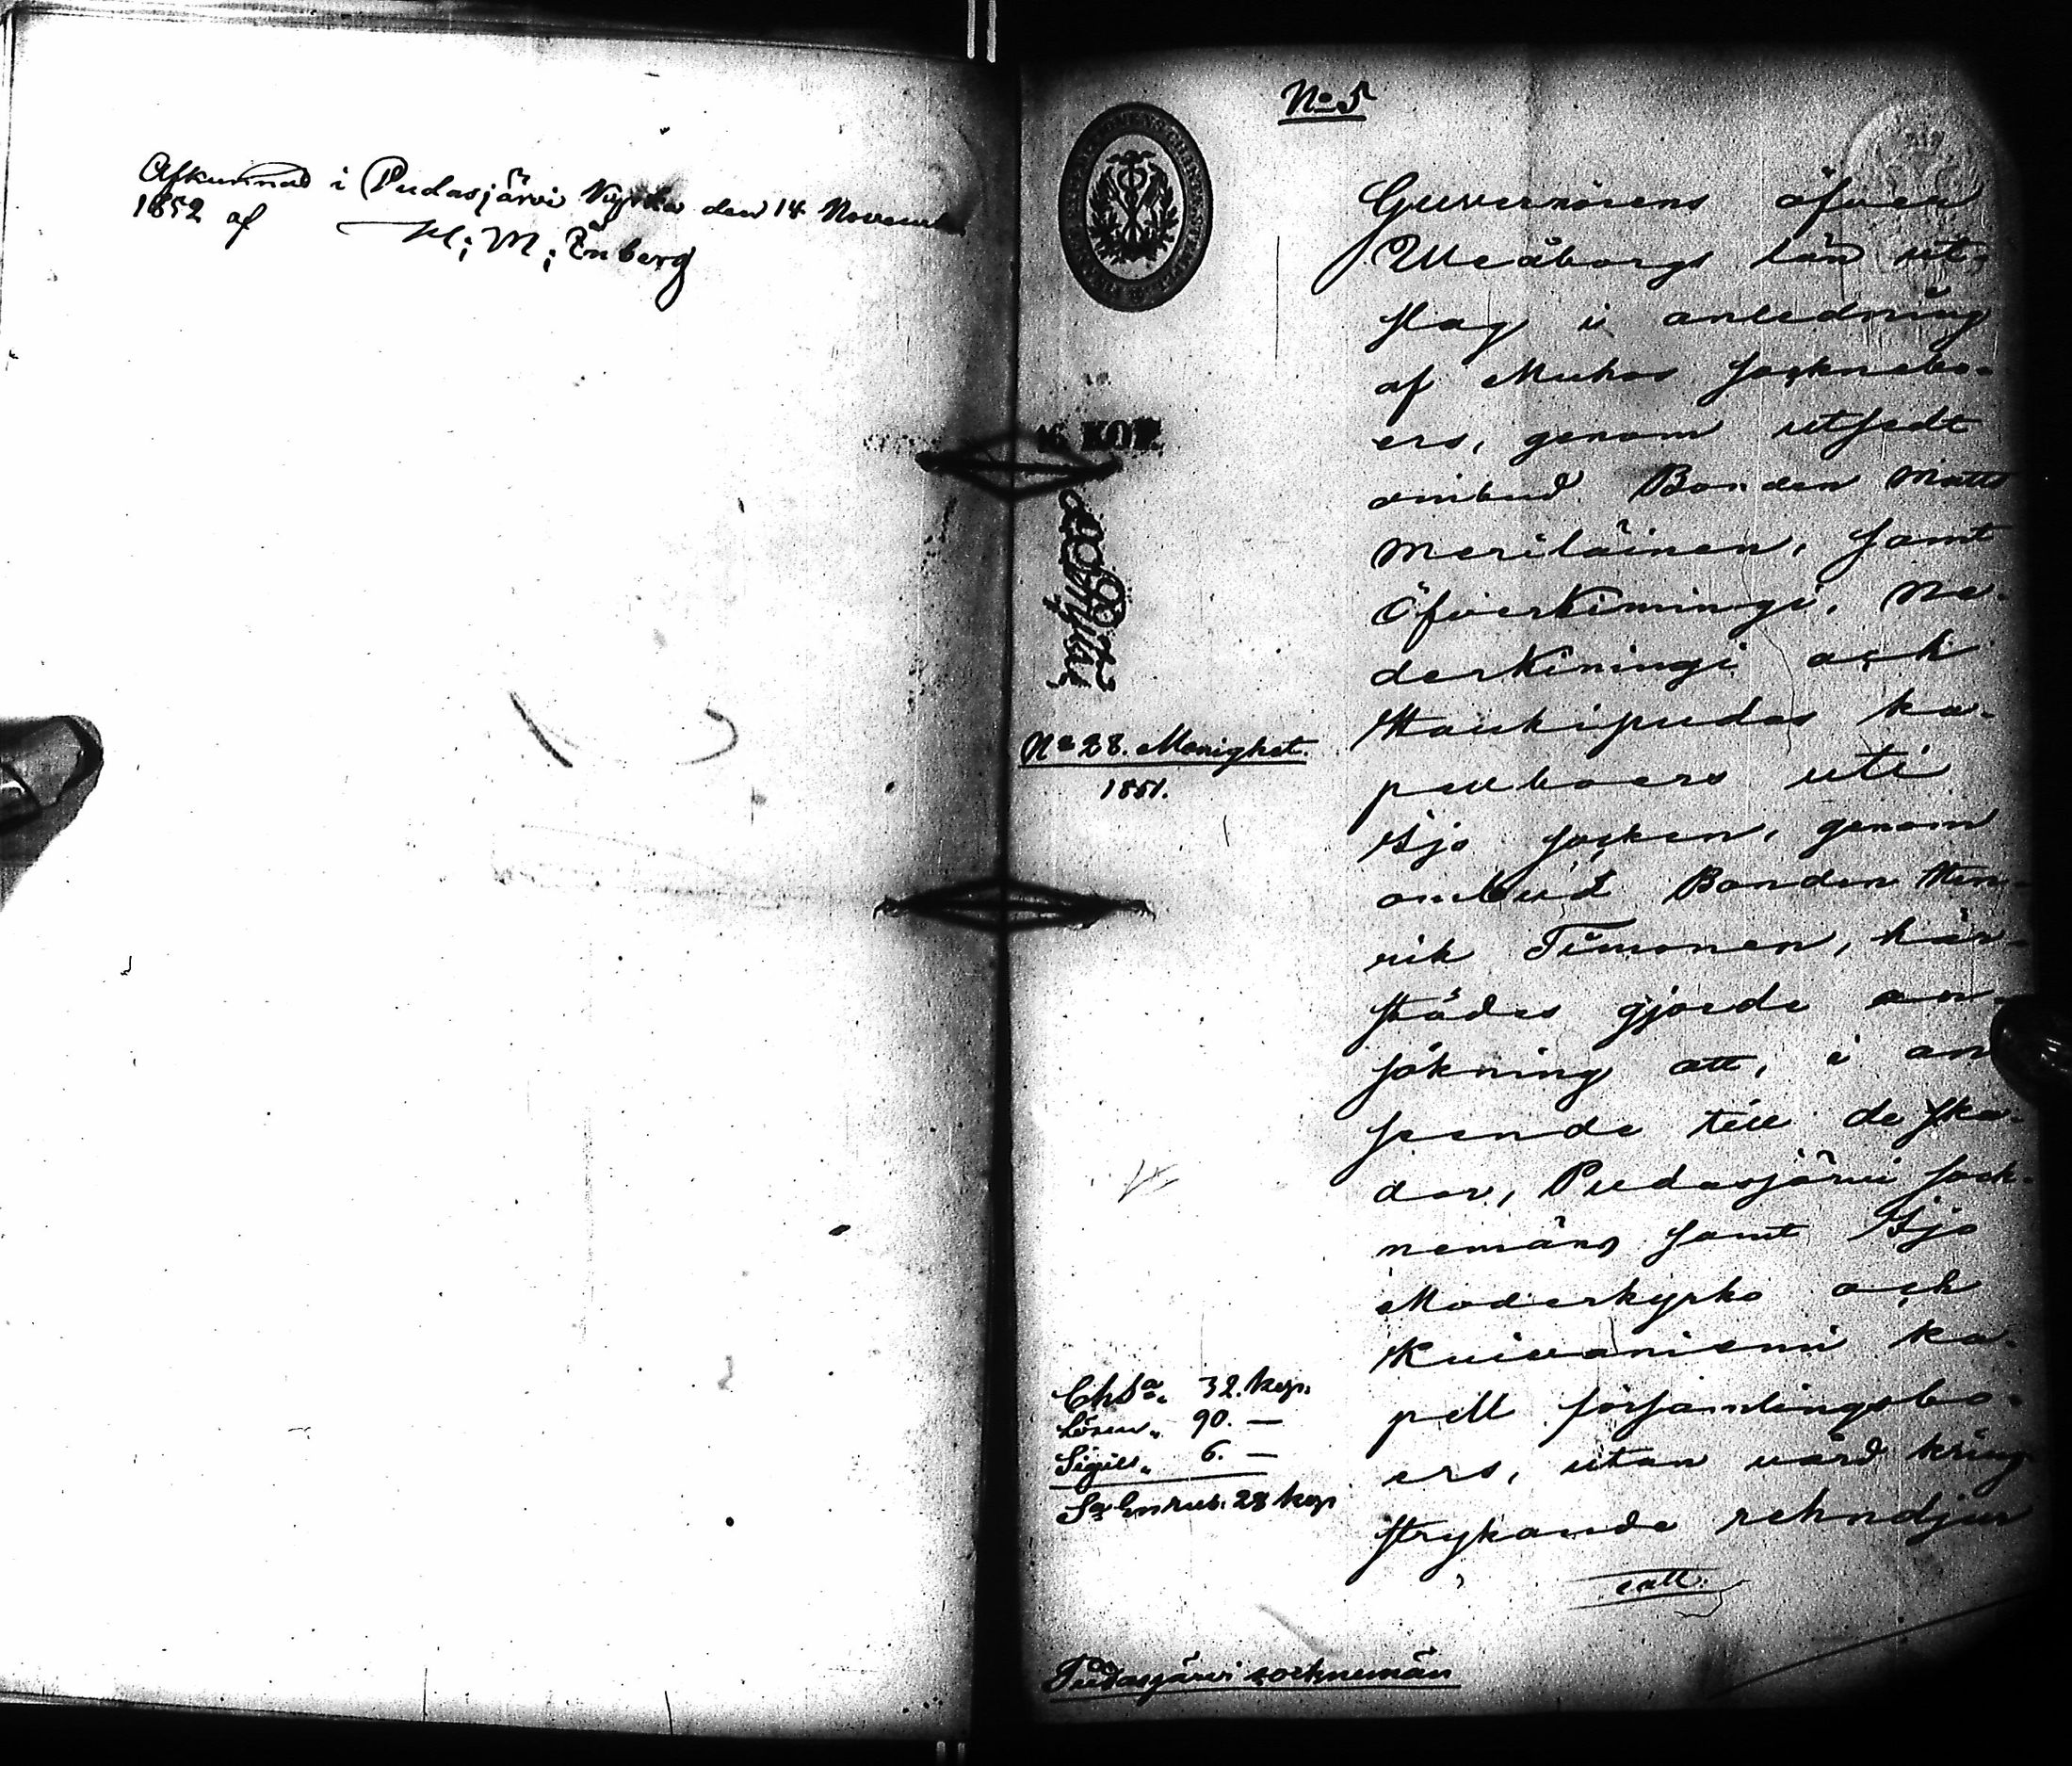 Afkunnad i Pudasjärvi Kyrka den 14 Novemb
1852 af H: M: Enberg
No 5
16 KOP.
No 28. Menighet.
1851.
Guvernörens öfver
Uleåborgs län ut-
slag i anledning
af Muhos socknebo-
ers, genom utsedt
ombud Bonden Matts
Meriläinen, samt
Öfverkiimingi, Ne-
derkiimingi och
Haukipudas ka-
pellboers uti
Ijo socken, genom
ombud Bonden Hen-
rik Timonen, här-
städes gjorde an-
sökning att, i an
seende till de ska-
dor, Pudasjärvi sock-
nemäns samt Ijo
Moderkyrko och
Kuivaniemi ka-
pell församlingsbo-
ers, utan vård kring
strykande rehndjur
ChSa. 32. kop.
Lösen. 90. —
Sigill. 6. —
Sa En rub. 28 kop
Pudasjärvi socknemän